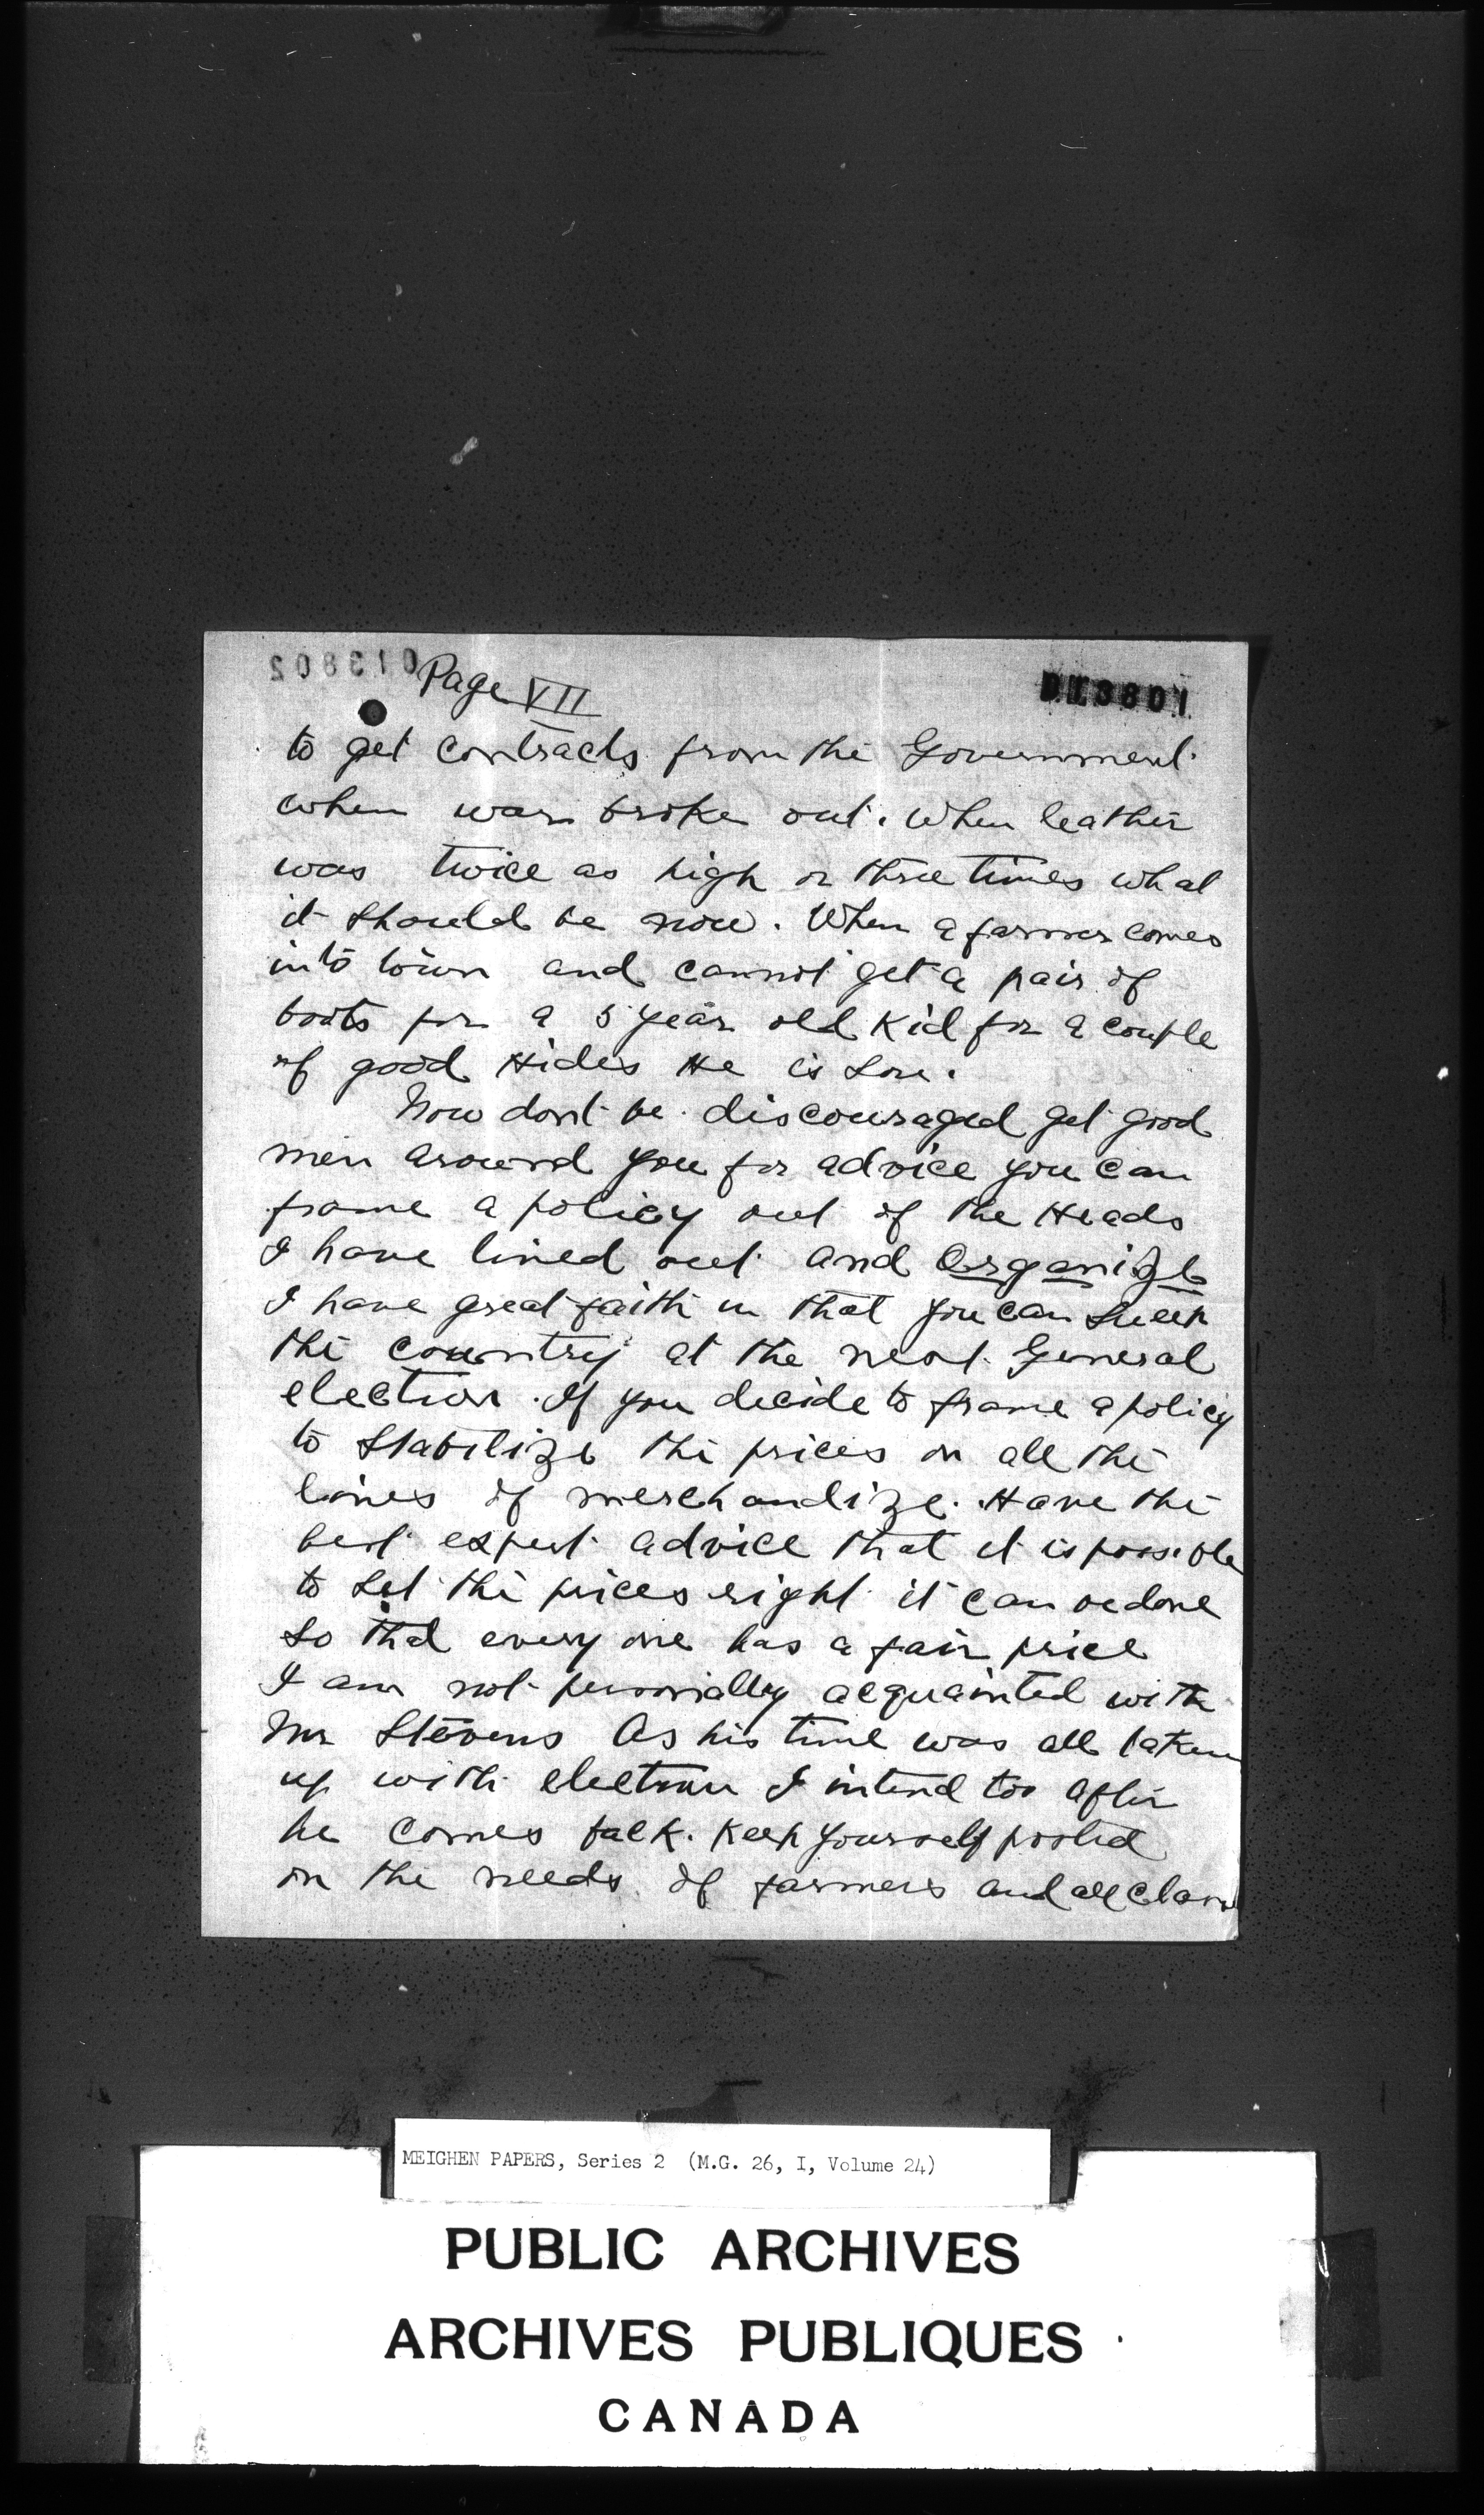 013802
Page VII
013801
to get contracts from the Government
when war broke out. When leather
was twice as high or three times what
it should be now. When a farmer comes
into town and cannot get a pair of
boots for a 5 year old Kid for a couple
of good Hides He is sore.
Now dont be discouraged get good
men around you for advice you can
frame a policy out of the Heads
I have lined out and Organize
I have great faith in that you can sweep
the country at the next General
election. If you decide to frame a policy
to stabilize the prices on all the
lines of merchandize. Have the
best expert advice that it is possible
to set the prices right it can be done
so that every one has a fair price
I am not personally acquainted with
Mr Stevens As his time was all taken
up with election I intend too after
he comes back. Keep yourself posted
on the needs of farmers and all
MEIGHEN PAPERS, Series 2 (M.G. 26, I, Volume 24)
PUBLIC ARCHIVES
ARCHIVES PUBLIQUES
CANADA